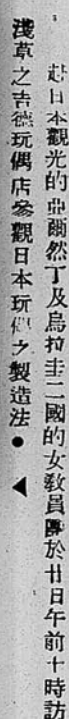 赴日本觀光的亞爾然丁及烏拉圭二國的女敎員團於廿日午前十時訪
淺草之吉德玩偶店參觀日本玩偶之製造法●◀